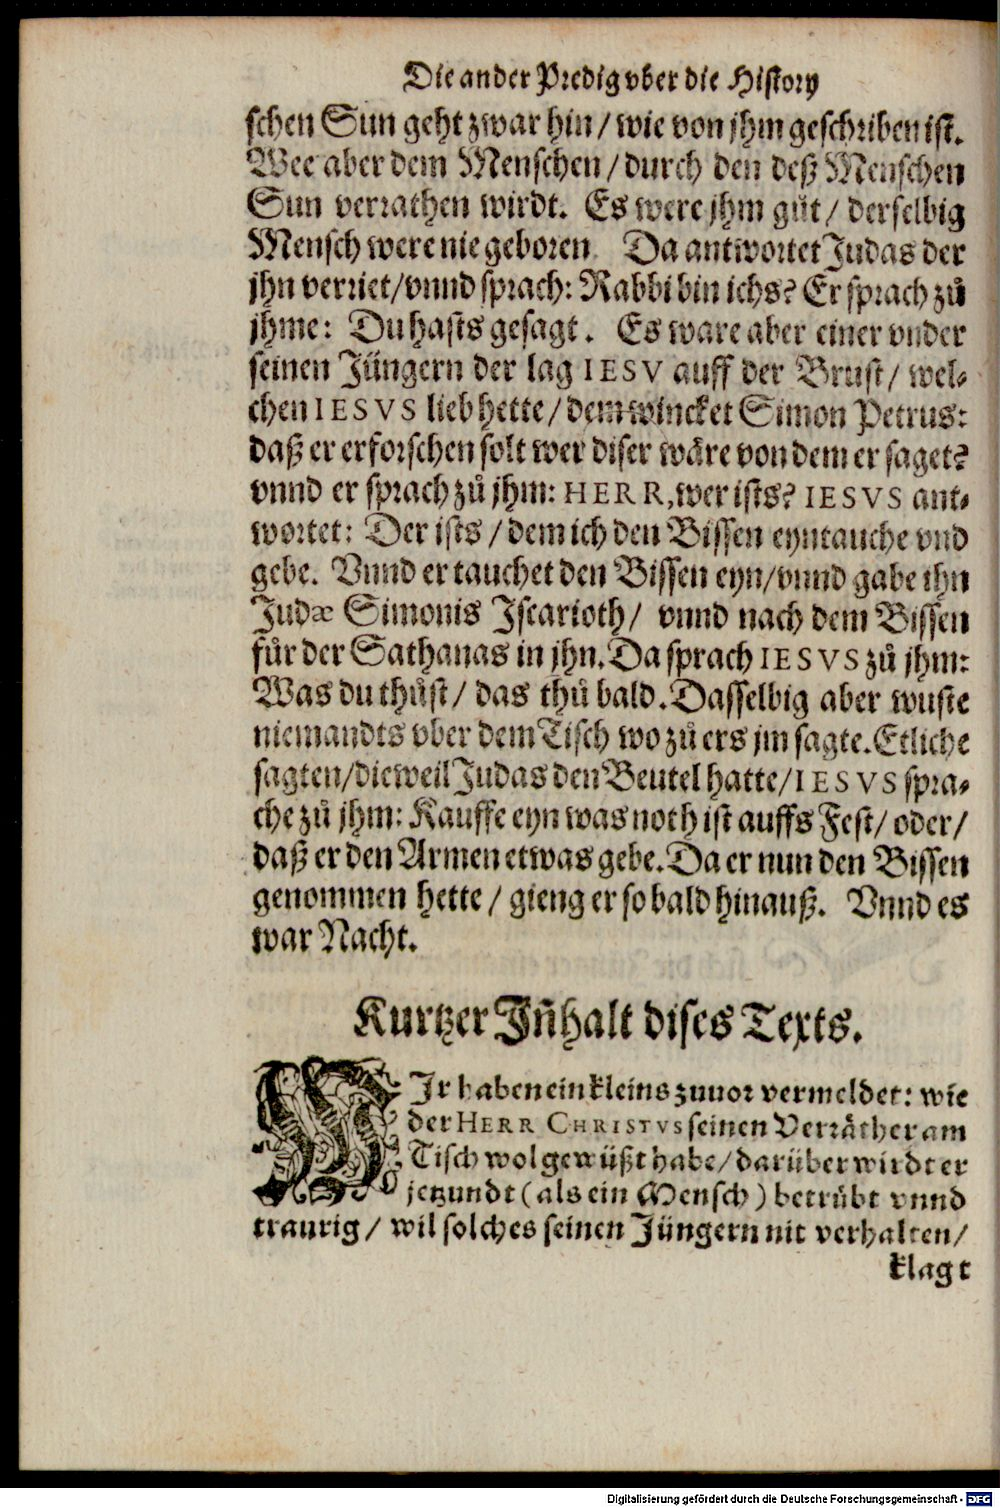 Die ander Predig vber die History
schen Sun geht zwar hin / wie von jhm geschriben ist.
Wee aber dem Menschen / durch den deß Menschen
Sun verrathen wirdt. Es were jhm gůt / derselbig
Mensch were nie geboren. Da antwortet Judas der
jhn verriet / vnnd sprach: Rabbi bin ichs? Er sprach zů
jhme: Du hasts gesagt. Es ware aber einer vnder
seinen Jüngern der lag IESV auff der Brust / wel-
chen IESVS lieb hette / dem wincket Simon Petrus:
daß er erforschen solt wer diser wäre von dem er saget?
vnnd er sprach zů jhm: HERR, wer ists? IESVS ant-
wortet: Der ists / dem ich den Bissen eyntauche vnd
gebe. Vnnd er tauchet den Bissen eyn / vnnd gabe ihn
Judæ Simonis Jscarioth / vnnd nach dem Bissen
fůr der Sathanas in jhn. Da sprach IESVS zů jhm:
Was du thůst / das thů bald. Dasselbig aber wuste
niemandts vber dem Tisch wo zů ers jm sagte. Etliche
sagten / dieweil Judas den Beutel hatte / IESVS spra-
che zů jhm: Kauffe eyn was noth ist auffs Fest / oder /
daß er den Armen etwas gebe. Da er nun den Bissen
genommen hette / gieng er so bald hinauß. Vnnd es
war Nacht.
Kurtzer Jñhalt dises Texts.
WJr haben ein kleins zuuor vermeldet: wie
der HERR CHRISTVS seinen Verräther am
Tisch wol gewüßt habe / darüber wirdt er
jetzundt (als ein Mensch) betrübt vnnd
traurig / wil solches seinen Jüngern nit verhalten /
klagt
Digitalisierung gefördert durch die Deutsche Forschungsgemeinschaft - DFG